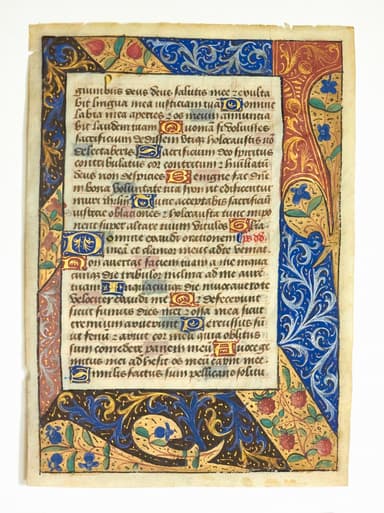 guinibus deus deus salutis mee et exulta
bit lingua mea iusticiam tuam Domine
labia mea aperies et os meum annuncia
bit laudem tuam Quonia si voluisses
sacrificium dedissem utique holocaustis nō
delectaberis Sacrificium deo spiritus
contribulatus cor contritum et humiliatū
deus non despicies Benigne fac dn̄e
in bona voluntate tua syon ut edificentur
muri ihrlm Tūc acceptabis sacrificiū
iusticie oblaciones et holocausta tunc impo
nent super altare tuum vitulos Glīa
Domine exaudi orationem ps dd
mea et clamor meus ad te veniat
Non avertas faciem tuam a me in qua
cunq die tribulor inclina ad me aurē
tuam In quacunq die invocavero te
velociter exaudi me Qr defecerunt
sicut fumus dies mei et ossa mea sicut
cremium aruerunt Percussus sū
ut fenū et aruit cor meū quia oblitus
sum comedere panem meū A voce ge
mitus mei adhesit os meū carni mee
Similis factus sum pellicano solitu